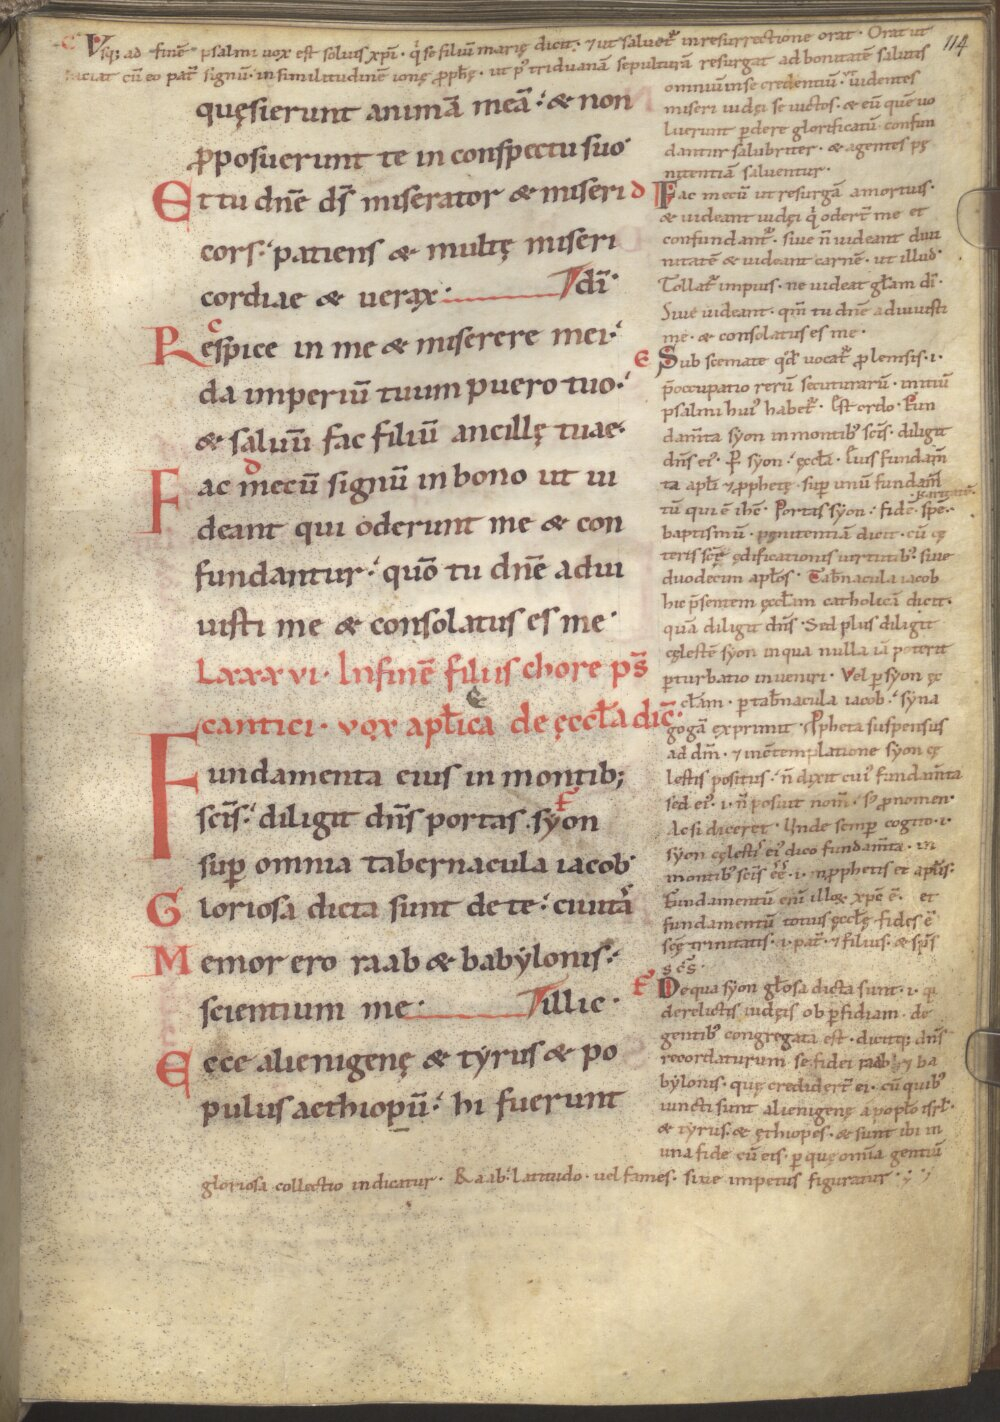 c Vsq; ad finē psalmi uox est solius xp̄i. q̓ se filiū marię dicit. ⁊ ut saluet᷑ in resurrectione orat. Orat ut
faciat cū eo pat᷑ signū. in similitudinē ionę ꝓph̄ę. ut p᷑ triduanā sepulturā resurgat ad bonitatē salutis
114
quęsierunt animā meā. & non
ꝓposuerunt te in conspectu suo.
Et tu dn̄e ds̄ miserator & miseri
cors. patiens & multę miseri
cordiae & uerax. di.
c
Respice in me & miserere mei.
da imperiū tuum puero tuo.
& saluū fac filiū ancillę tuae.
d
Fac mecū signū in bono ut ui
deant qui oderunt me & con
fundantur. quō tu dn̄e adiu
uisti me & consolatus es me.
Lxxxvi. In finē filiis chore ps̄
e
cantici. vox apl̄ica de ęccl̄a dic̄.
Fundamenta eius in montib;
sc̄is. diligit dn̄s portas syon
f
suꝑ omnia tabernacula iacob.
Gloriosa dicta sunt de te. ciuita
Memor ero raab & babylonis.
scientium me. illic.
Ecce alienigenę & tyrus & po
pulus aethiopū. hi fuerunt
omniū in se credentiū. ut uidentes
miseri iudęi se uictos. & eū quē uo
luerunt ꝑdere glorificatū confun
dantur salubriter. & agentes pę
nitentiā saluentur.
d Fac mecū ut resurgā a mortuis.
& uideant iudęi q̓ odert̄ me et
confundant᷑. siue n̄ uideant diui
nitatē & uideant carnē. ut illud.
Tollat᷑ impius. ne uideat gl̄am di.
Siue uideant. qm̄ tu dn̄e adiuuisti
me. & consolatus es me.
e Sub scemate q̓d uocat᷑ prolemsis. i.
p̄occupatio rerū secuturarū. initiū
psalmi hui᷒ habet᷑. Est ordo. Fun
dam̄ta syon in montib᷒ sc̄is. diligit
dn̄s ei᷒. P᷑ syon. ęccl̄a. Cuius fundam̄
ta apl̄i ⁊ ꝓphetę. suꝑ unū fundam̄
tū qui ē ih̄c. Portas syon. fidē. spē. karitatē.
baptismū. pęnitentiā dicit. cū cę
teris sc̄ę ędificationis uirtutib᷒. siue
duodecim apl̄os. Tab̄nacula iacob
hic p̄sentem ęccl̄am catholicā dicit.
quā diligit dn̄s. Sed plus diligit
cęlestē syon in qua nulla iā poterit
ꝑturbatio inueniri. Vel ꝑ syon ęc
cl̄am. ꝑ tab̄nacula iacob. syna
gogā exprimit. Ꝓpheta suspensus
ad dm̄. ⁊ in ētemplatione syon cę
lestis positus. n̄ dixit cui᷒ fundam̄ta
sed ei᷒. i. n̄ posuit nom̄. s; ꝓnomen.
Ac si diceret. Unde semꝑ cogito. i.
syon cęlesti. ei᷒ dico fundam̄ta. in
montib᷒ sc̄is ēē. i. in ꝓphetis et apl̄is.
Fundamentū eni illoꝝ xp̄c ē. et
fundamentū totius ęccl̄ę. fides ē
sc̄ę trinitatis. i. pat᷑. ⁊ filius. & sp̄s
sc̄s.
f De qua syon gl̄osa dicta sunt. i. q᷒
derelictis iudęis ob ꝑfidiam. de
gentib᷒ congregata est. dicitq; dn̄s
recordaturum se fidei raab ⁊ ba
bylonis. quę credidert̄ ei. cū quib᷒
iuncti sunt alienigenę a poplo isrl̄.
& tyrus. & ęthiopes. & sunt ibi in
una fide cū eis. ꝑ quę omīa gentiū
gloriosa collectio indicatur. Raab. Latitudo. uel fames. siue impetus figuratur.